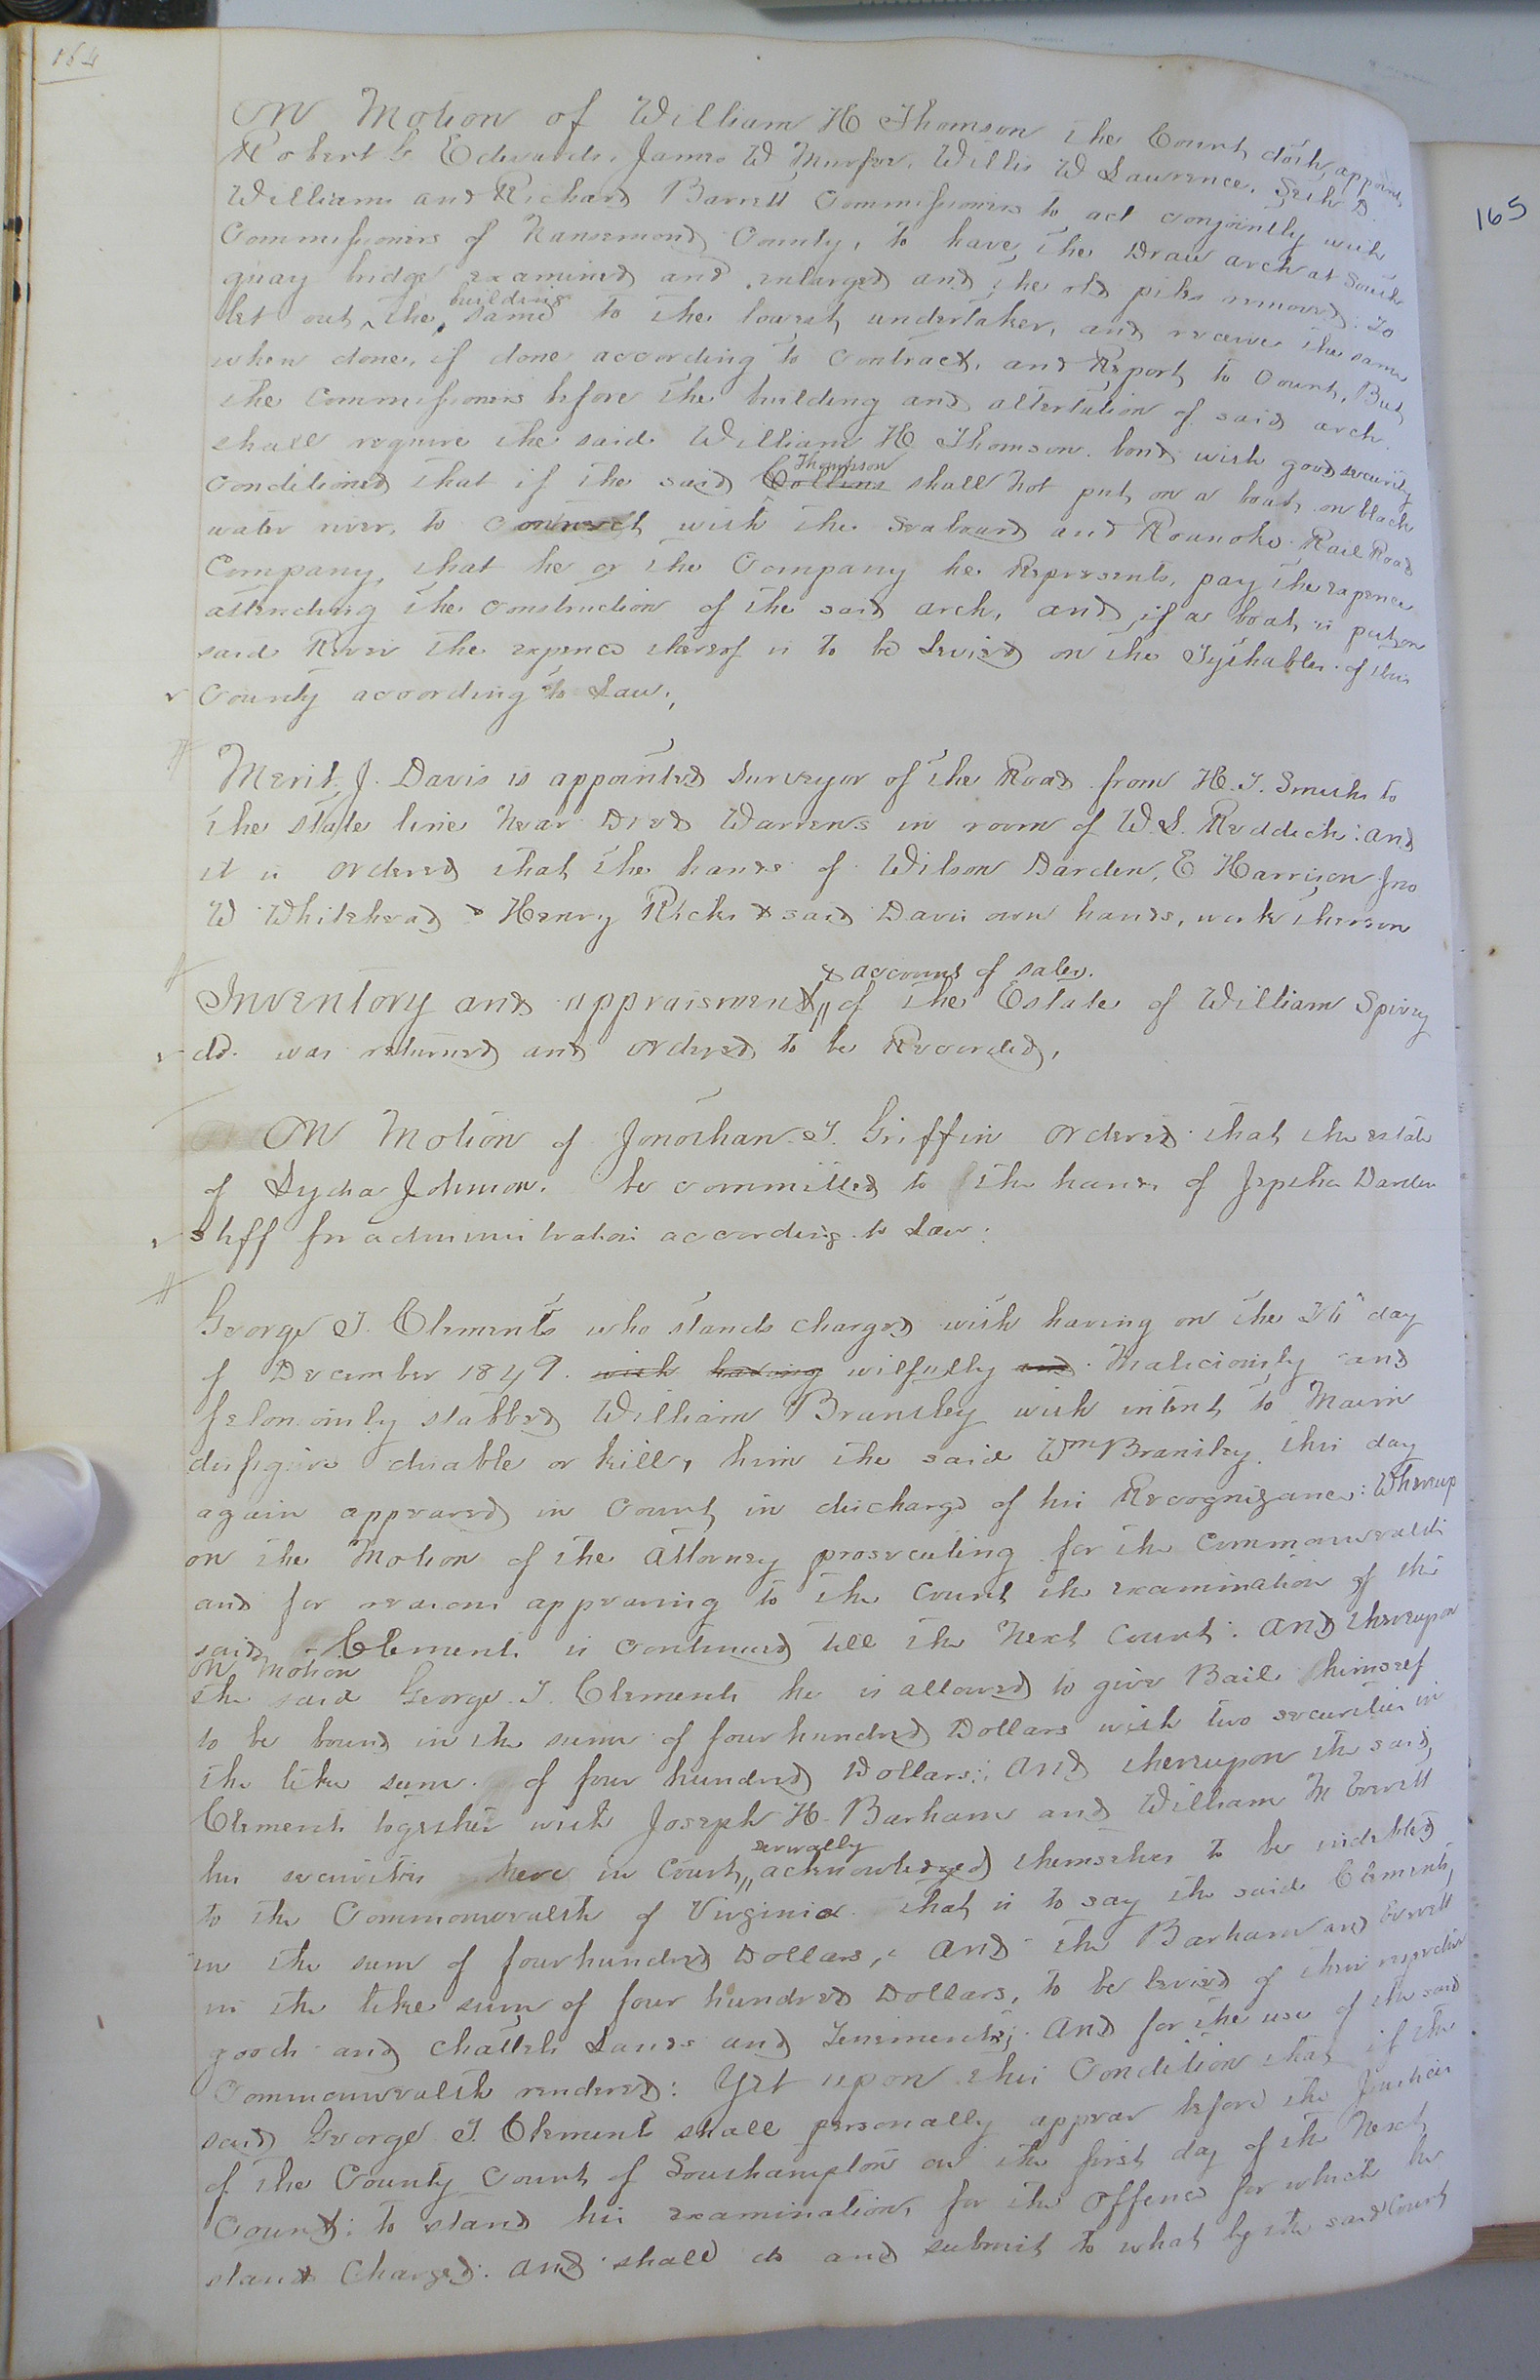 164
165
On Motion of William H Thomson the Court doth appoint
Robert G Edwards, James W Murfee, Willis W Lawrence, Seth D.
Williams and Richard Barrett Commissioners to act conjointly with
Commissioners of Nansemond County, to have the Draw arch at South
quay bridge examined and enlarged and the old piles removed: To
let out the building same to the lowest undertaker, and receive the same
when done, if done according to Contract, and Report to Court, But
the Commissioners before the building and altertation of said arch.
shall require the said William H Thomson bond with good security
Conditioned that if the said Collins Thompson shall not put on a boat on black
water river, to connect with the Seaboard and Roanoke Rail Road
Company, that he or the Company he Represents, pay the expence
attending the construction of the said arch, and if a boat is put on
said River the expence thereof is to be Levied on the Tythables of this
County according to Law,
Merit J. Davis is appointed Surveyor of the Road from H. T. Smiths to
the state line Near Dred Warrens in room of W. S. Reddick: and
it is ordered that the hands of Wilson Darden, E Harrison Jno
W Whitehead & Henry Ricks & said Davis own hands, work thereon
& account of sales.
Inventory and appraisment of the Estate of William Spivey
dd. was returned and ordered to be Recorded,
On Motion of Jonothan T. Griffin ordered that the estate
of Lydia Johnson. be committed to the hands of Jeptha Darden
Shff for administration according to Law.
George T. Clements who stands charged with having on the day
of December 1849. with having wilfully and Maliciously and
feloniously stabbed William Brantley with intent to Maim
disfigure disable or kill, him the said Wm Brantley this day
again appeared in Court in discharge of his Recognizance: Whereup
on the Motion of the Attorney prosecuting for the Commonwealth
and for reasons appearing to the Court the examination of the
said Clements is continued till the Next Court: And thereupon
on Motion
the said George T. Clements he is allowed to give Bail himself
to be bound in the sum of four hundred Dollars with two securities in
the like sum of four hundred Dollars: And thereupon the said
Clements together with Joseph H. Barham and William Everitt
his securities here in Court, severally acknowledged themselves to be indebted
to the Commonwealth of Virginia that is to say the said Clements,
in the sum of four hundred Dollars, And the Barham and Everitt
in the like sum of four hundred Dollars, to be levied of their respective
goods and Chattels Lands and Tenements; And for the use of the said
Commonwealth rendered: Yet upon this Condition that if the
said George T. Clements shall personally appear before the Justices
of the County Court of Southampton on the first day of the Next
Court: to stand his examination, for the Offence for which he
stands Charged: And shall do and submit to what by the said Court